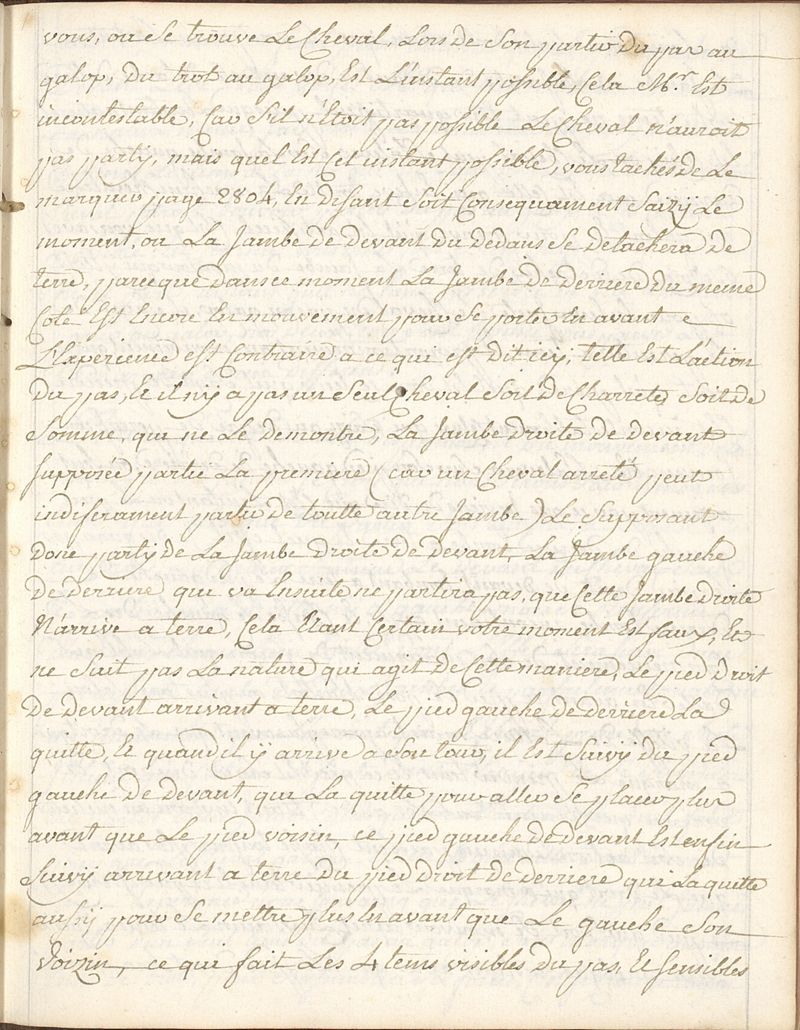 vous, ou se trouve Le Cheval, Lors de Son partir du pas au
galop, du trot au galop, Est L'instant possible, Cela Mr. Est
incontestable, Car S'il n'Étoit pas possible Le Cheval n'auroit
pas party, mais quel Est Cet instant possible, vous tachés de Le
marquer page 2804, En disant Soit Consequament Saizy Le
moment, ou La Jambe de devant du dedans Se detachera de
terre, parceque dans ce moment La Jambe de derriere du meme
Coté Est Encore En mouvement pour Se porter En avant
L'Experience est Contraire a ce qui est dit icy, telle Est L'action
du pas, Et il n'y a pas un Seul Cheval Soit de Charrete, Soit de
Somme, qui ne Le demontre, La Jambe droite de devant
supposée partie La premiere (car un Cheval arreté peut
indiferament partir de toutte autre Jambe) Le Supposant
donc party de La Jambe droite de devant, La Jambe gauche
de derriere qui va Ensuite ne partira pas, que Cette Jambe droite
N'arrive a terre, Cela Etant Certain votre moment Est faux, Et
ne Suit pas La nature qui agit de Cette maniere, Le pied droit
de devant arrivant a terre, Le pied gauche de derriere La
quitte, Et quand il y arrive a Son tour, il Est Suivy du pied
gauche de devant, qui La quitte pour aller Se placer plus
avant que Le pied voisin, ce pied gauche de devant Est enfin
Suivy arrivant a terre du pied droit de derriere qui La quitte
aussy pour Se mettre plus En avant que Le gauche Son
Voizin, ce qui fait Les 4 tems visibles du pas, Et Sensibles